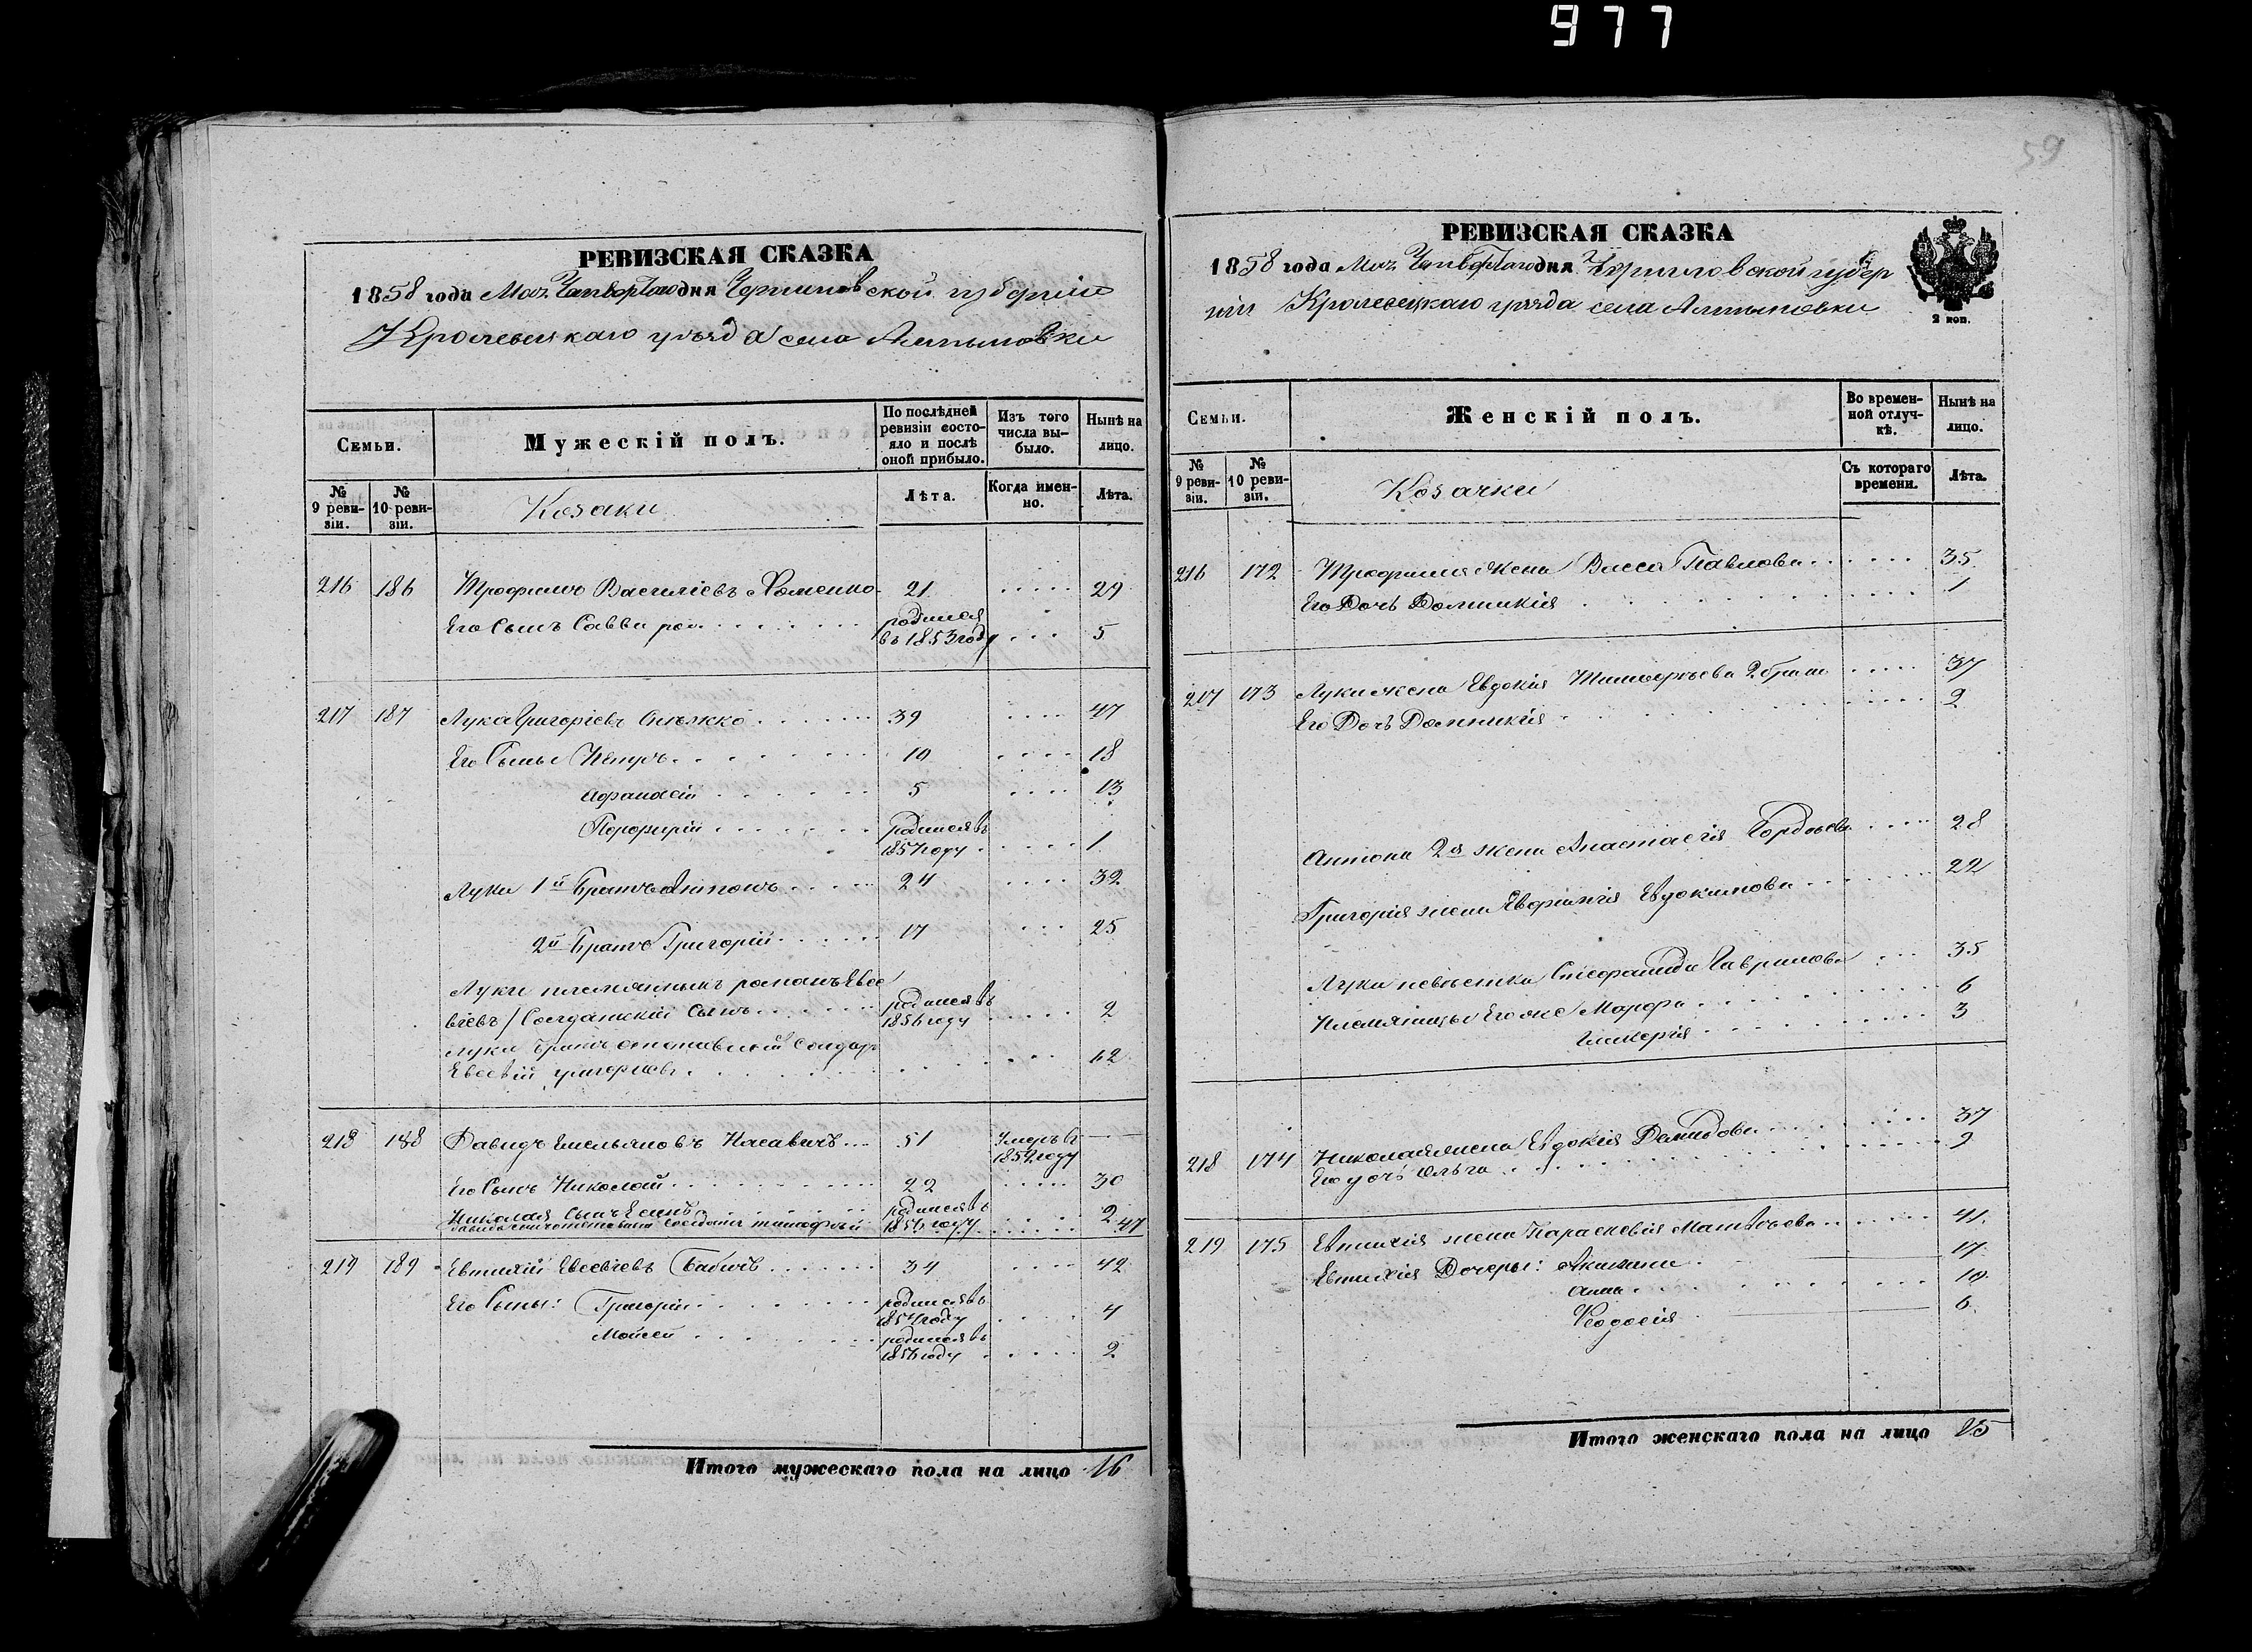 977
59
РЕВИЗСКАЯ СКАЗКА
1858 года Мая Четвертаго дня Черниговской губерніи
Кролевецкаго уѣзда села Алтыновки
Семьи.
Мужескій полъ.
По послѣдней ревизіи состояло и послѣ оной прибыло.
Изъ того числа выбыло.
Нынѣ на лицо.
№ 9 ревизіи.
№ 10 ревизіи.
Козаки
Лѣта.
Когда именно.
Лѣта.
216 186 Трофимъ Василіевъ Хоменко 21 29
Его Сынъ Савва родился въ 1853 году 5
217 187 Лука Григоріевъ 39 47
Его Сыны 10 18
Афанасій 5 13
Порфирій родился въ 1857 году 1
Луки 1й Братъ Антонъ 24 32
2й Братъ Григорій 17 25
Луки племянникъ романъ Евсе
віевъ / Солдатскій Сынъ родился въ 1856 году 2
Луки братъ отставной Солдат
Евсевій григорьев 62
218 188 Давидъ Емельяновъ Насавичъ 51 Умеръ въ 1852 году
Его Сынъ Николай 22 30
Николая Сынъ родился въ 1856 году 2
47
219 189 Евтихій Евсевіевъ Бабичъ 34 42
Его Сыны: Григорій родился въ 1854 году 4
Мойсей родился въ 1856 году 2
Итого мужескаго пола на лицо 16
РЕВИЗСКАЯ СКАЗКА
1858 года Мая Четвертаго дня Черниговской губер
ніи Кролевецкаго уѣзда села Алтыновки
2 коп.
Семьи.
Женскій полъ.
Во временной отлучкѣ.
Нынѣ на лицо.
№ 9 ревизіи.
№ 10 ревизіи.
Козачки
Съ котораго времени.
Лѣта.
216 172 Трофима Жена Васса Павлова 35
Его Дочь Домникія 1
217 173 Луки жена Евдокія Тимофѣева 37
Его Дочь Домникія 2
Антона 2я жена Анастасія Гордѣева 28
Григорія жена Евфимія Евдокимова 22
Луки невѣстка Степанида Гаврилова 35
Племянницы Его же Марфа 6
Гликерія 3
218 174 Николая жена Евдокія Демидова 37
Его дочь Ольга 9
219 175 Евтихія жена Параскевія Матвѣева 41
Евтихія Дочеры: Акилина 17
Анна 10
Феодосія 6
Итого женскаго пола на лицо 15